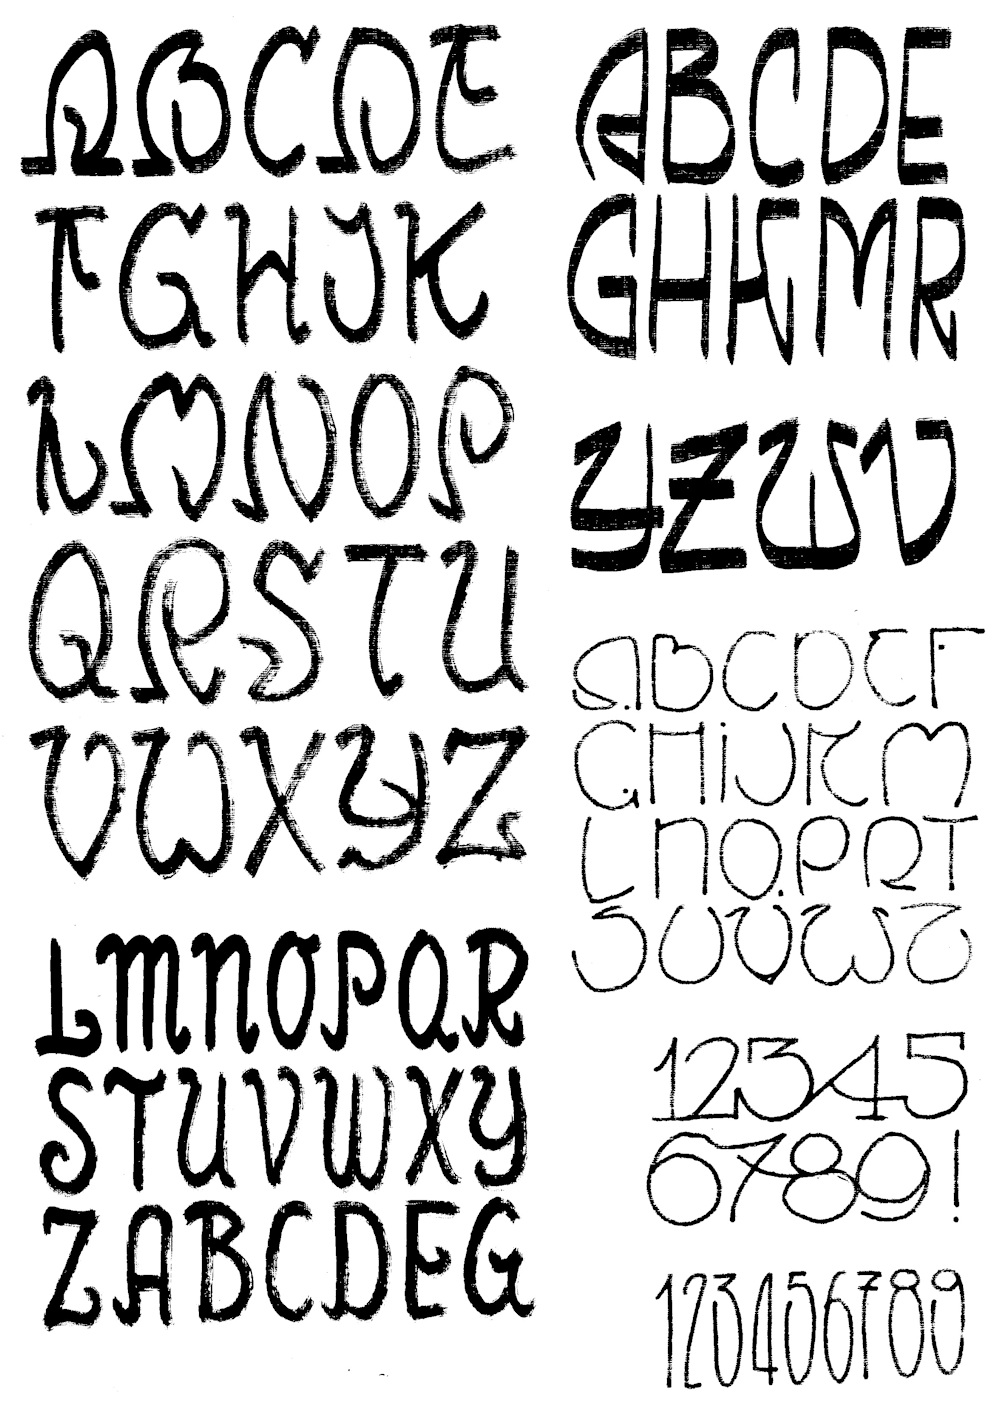 ABCDE
FGHJK
LMNOP
QRSTU
VWXYZ
LMNOPQR
STUVWXY
ZABCDEG
ABCDE
GHKMR
YZWV
ABCDEF
GHIJKM
LNO.PRT
SUVWZ
12345
6789!
123456789